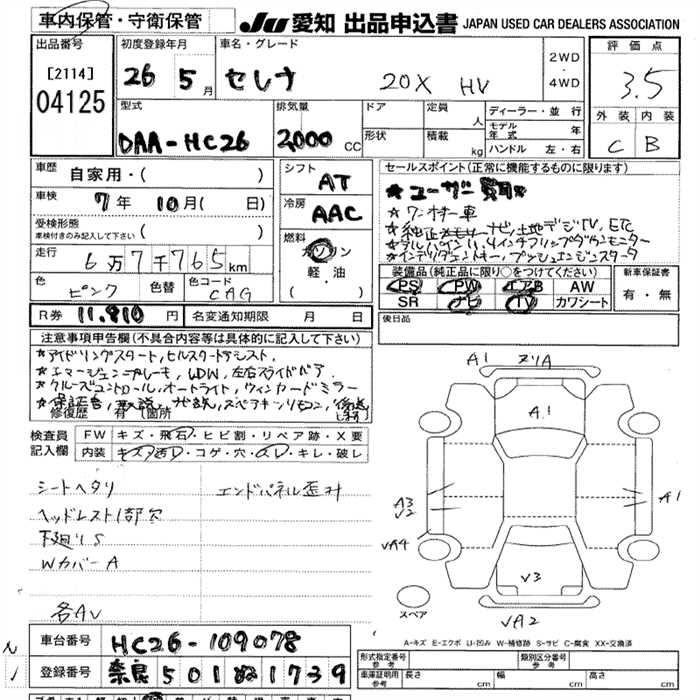 車内保管・守衛保管
JU 愛知 出品申込書 JAPAN USED CAR DEALERS ASSOCIATION
出品番号
[2114]
04125
初度登録年月
26 5月
車名・グレード
セレナ 20X HV
2WD
・
4WD
評価点
3.5
外装 内装
C B
型式
DAA-HC26
排気量
2000 CC
ドア
形状
定員 人
積載 kg
ディーラー・並行
モデル年式 年
ハンドル 左・右
車歴
自家用・( )
車検
7年 10月( 日)
受検形態
車検付きのみ記入して下さい( )
走行
6万7千765km
色
ピンク
色替
色コード
CAG
シフト
AT
冷房
AAC
燃料
ガソリン
軽・油
( )
R券 11,810円
名変通知期限 月 日
セールスポイント(正常に機能するものに限ります)
★ユーザー買取★
★ワンオーナー車
★純正メモリーナビ、地デジTV、ETC
★アルパイン11.4インチフリップダウンモニター
★インテリジェントキー、プッシュエンジンスターター
装備品(純正品に限り○をつけてください)
PS PW エアB AW
SR ナビ TV カワシート
新車保証書
有・無
後日品
注意事項申告欄(不具合内容等は具体的に記入して下さい)
★アイドリングストップ、ヒルスタートアシスト、
★エマージェンシーブレーキ、LDW、左右スライドドア、
★クルーズコントロール、オートライト、ウィンカードミラー
★保証書、取説、ナビ説、スペアキー、リモコン、後送します
修復歴 有( )箇所
検査員記入欄
FW キズ・飛石・ヒビ割・リペア跡・X要
内装 キズ・汚れ・コゲ・穴・スレ・キレ・破レ
シートヘタリ エンドパネル歪み
ヘッドレスト1部欠
下廻りS
WカバーA
各AV
A1 ヌリA
A.1
A3
V2
A1
VA4
V3
VA2
スペア
A-キズ E-エクボ U-凹み W-補修跡 S-サビ C-腐食 XX-交換済
車台番号 HC26-109078
登録番号 奈良 501 1739
形式指定番号
参考
類別区分番号
参考
車庫証明用
参考
長さ cm
幅 cm
高さ cm